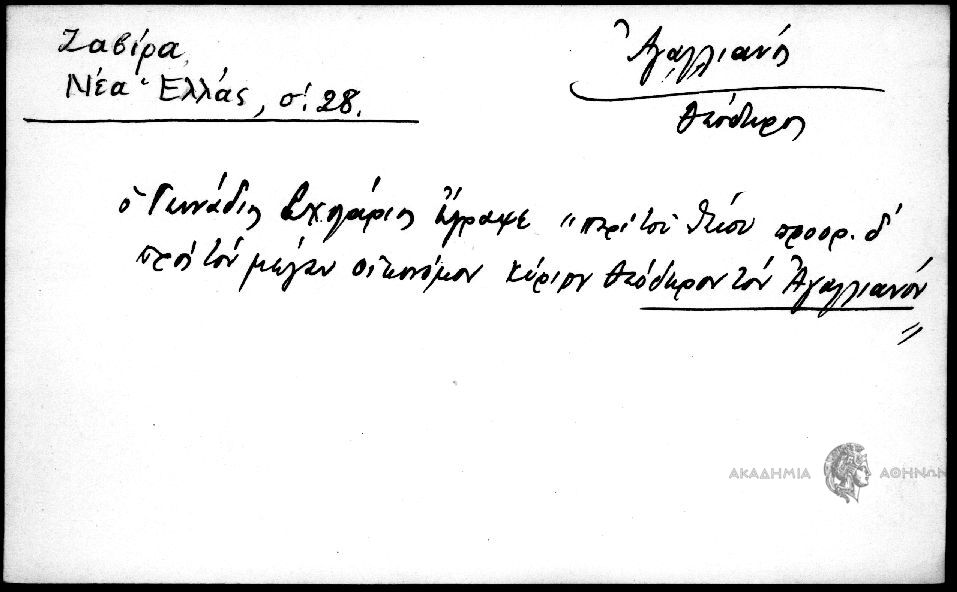 Ζαβίρα,
Νέα Ἑλλάς, σ. 28.
Ἀγαλλιανός
Θεόδωρος
ὁ Γεννάδιος Σχολάριος ἔγραψε "περὶ τοῦ θείου προορ. δ΄
πρὸς τὸν μέγαν οἰκονόμον κύριον Θεόδωρον τὸν Ἀγαλλιανόν
"
ΑΚΑΔΗΜΙΑ ΑΘΗΝΩΝ